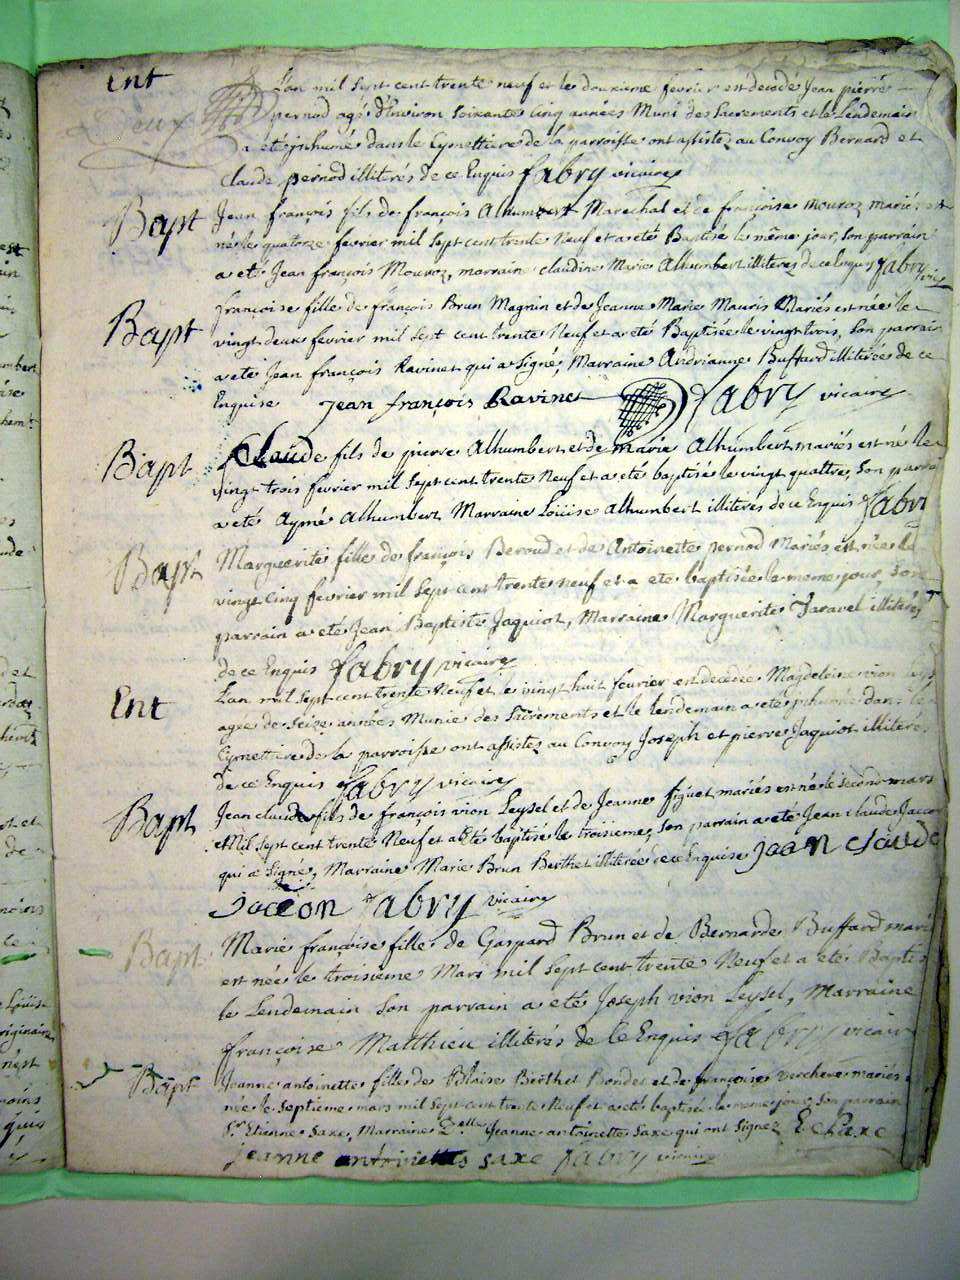 Ent
L'an mil sept cent trente neuf et le douxieme fevrier est decedé Jean pierre
pernod agé d'Environ soixante Cinq années Muni des Sacrements et le lendemain
a eté jnhumé dans le Cymettiere de la parroisse ont assistez au Convoy Bernard et
Claude pernod illiterés de ce Enquis fabry vicaire
Bapt
Jean françois fils de françois Alhumbert Marechal et de françoise mouroz mariés est
né le quatorze fevrier mil sept cent trente Neuf et a eté Baptisé le même jour, son parrain
a eté Jean françois Mouroz, marrain Claudine Marie Alhumbert illiteres de ce Enquis fabry
vicaire
Bapt
françoise fille de françois Brun Magnin et de Jeanne Marie Mauris Mariés est née le
vingt deux fevrier mil sept cent trente Neuf et a eté Baptisée le vingt trois, son parrain
a eté Jean françois Ravinet qui a signé, Marraine Andrianne Buffard illiterée de ce
Enquise jean françois Ravinet fabry vicaire
Bapt
Claude fils de pierre Alhumbert et de marie Alhumbert mariés est né le
vingt trois fevrier mil sept cent trente Neuf et a eté baptisé le vingt quattre, son parrai
a eté Aymé Alhumbert Marraine Loüise Alhumbert illiteres de ce Enquis fabri
Bapt
Marguerite fille de françois Beroud et de Antoinette pernod Mariés est née le
vingt Cinq fevrier mil sept cent trente neuf et a eté baptisée le meme jour, son
parrain a eté Jean Baptiste Jaquiot, Marraine Marguerite Taravel illiterés
de ce Enquis fabry vicaire
Ent
L'an mil sept cent trente Neuf et le vingt huit fevrier est decedée Magdeleine vion
agée de seize années Munie des Sacrements et le lendemain a eté jnhumé dans le
Cymettiere de la parroisse ont assistes au Convoy Joseph et pierre Jaquiot illiteres
de ce Enquis fabry vicaire
Bapt
Jean claude fils de françois vion Leysel et de Jeanne figuet mariés est né le second mars
et Mil sept cent trente Neuf et a eté baptisé le troisieme, son parrain a eté Jean claude Jaccon
qui a signé, Marraine Marie Brun Berthet illiterée de ce Enquise jean claude
jaccon fabry vicaire
Bapt
Marie françoise fille de Gaspard Brun et de Bernarde Buffard marié
est née le troisieme Mars mil sept cent trente Neuf et a eté Baptis
le Lendemain son parrain a eté Joseph vion Leysel, Marraine
françoise Matthieu illiterés de ce Enquis fabry vicair
Bapt
Jeanne antoinette fille de Blaise Berthet Bondet et de françoise verchere mariés
née le septieme mars mil sept cent trente Neuf et a eté baptisée le meme jour, son parrain
Sr Etienne saxe, Marraine Delle Jeanne antoinette saxe qui ont signez E De Saxe
jeanne antoinette saxe fabry vicaire